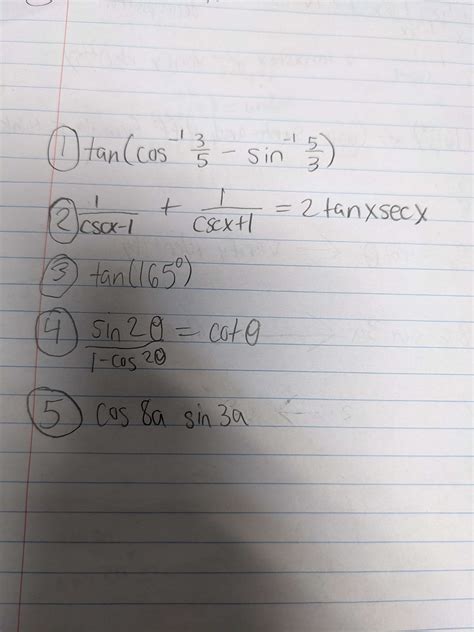 ① tan(cos⁻¹ 3/5 - sin⁻¹ 5/3)
② 1/cscx-1 + 1/cscx+1 = 2tanxsecx
③ tan(165°)
④ sin2θ/1-cos2θ = cotθ
⑤ cos 8a sin 3a